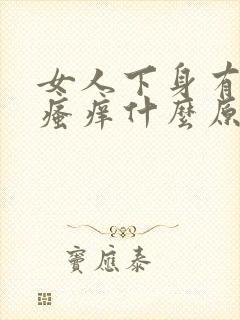 女人下身有
瘙痒什麼原
竇應泰